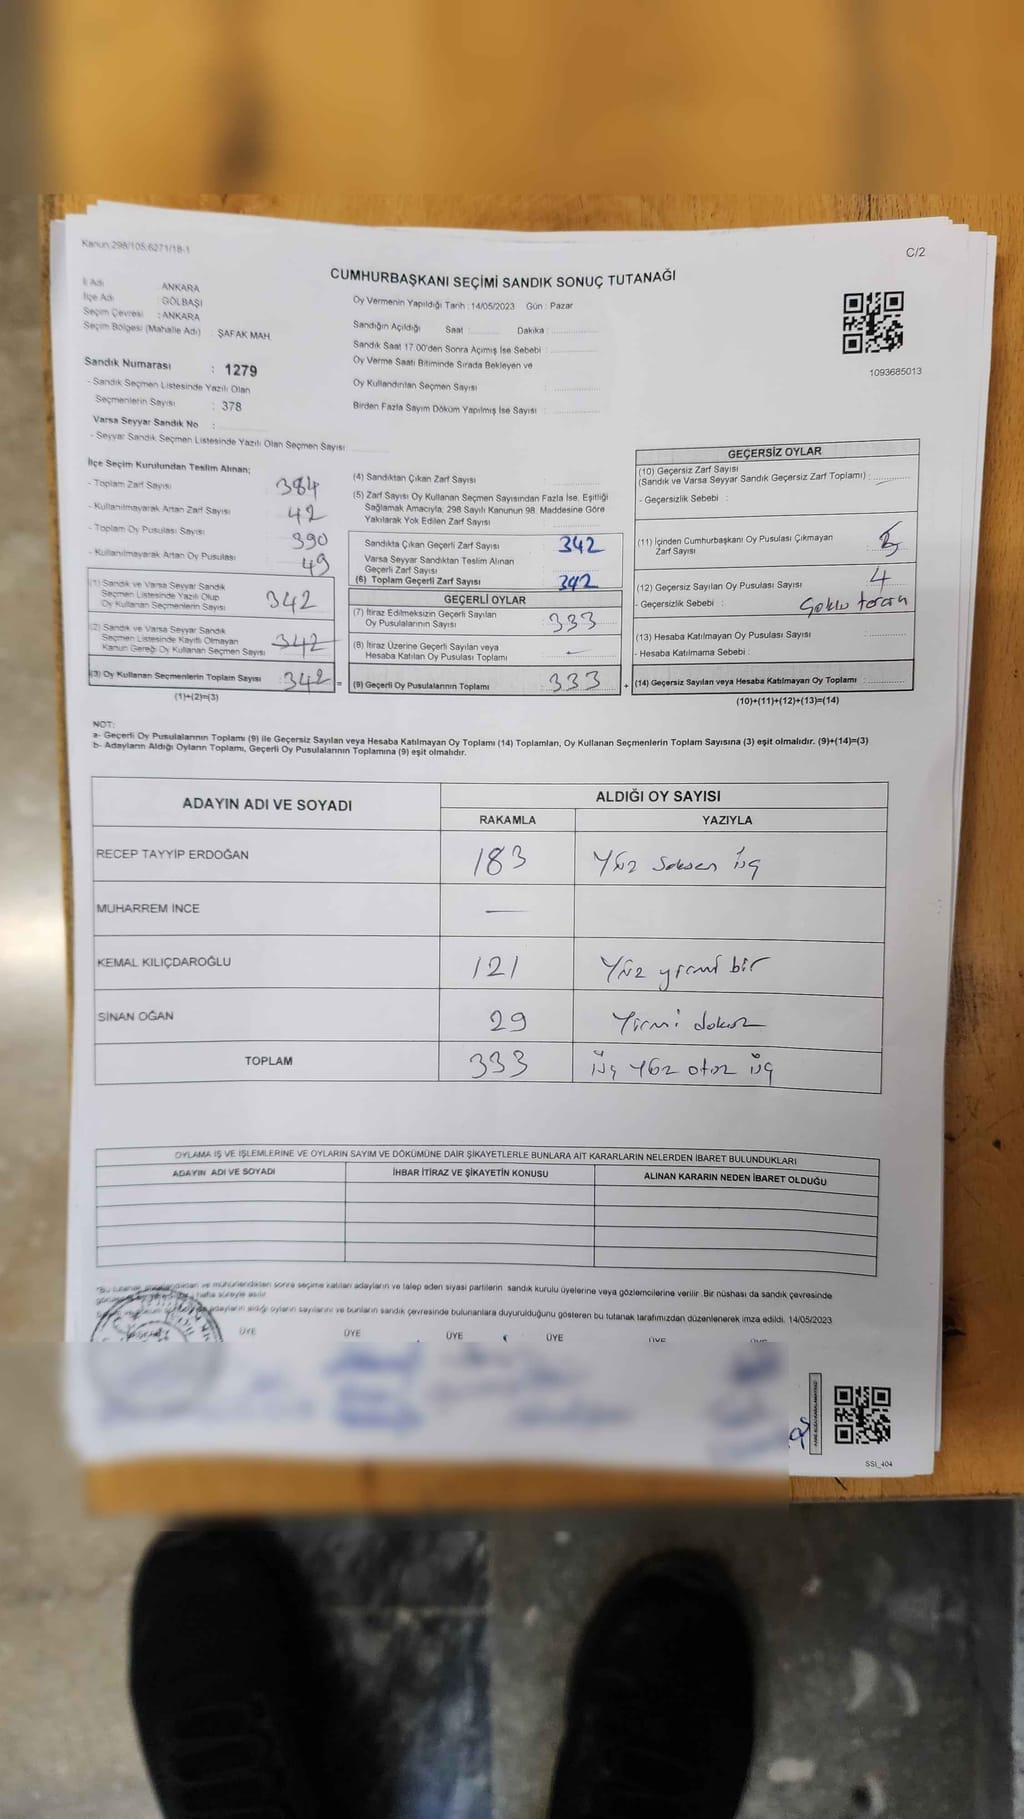 Kanun:298/105;6271/18-1
C/2
CUMHURBAŞKANI SEÇİMİ SANDIK SONUÇ TUTANAĞI
İl Adı : ANKARA
İlçe Adı : GÖLBAŞI
Seçim Çevresi : ANKARA
Seçim Bölgesi (Mahalle Adı) : ŞAFAK MAH.
Sandık Numarası : 1279
- Sandık Seçmen Listesinde Yazılı Olan
Seçmenlerin Sayısı : 378
Varsa Seyyar Sandık No :
- Seyyar Sandık Seçmen Listesinde Yazılı Olan Seçmen Sayısı
Oy Vermenin Yapıldığı Tarih : 14/05/2023 Gün : Pazar
Sandığın Açıldığı Saat : Dakika :
Sandık Saat 17.00'den Sonra Açımış İse Sebebi :
Oy Verme Saati Bitiminde Sırada Bekleyen ve
Oy Kullandırılan Seçmen Sayısı :
Birden Fazla Sayım Döküm Yapılmış İse Sayısı :
1093685013
İlçe Seçim Kurulundan Teslim Alınan;
- Toplam Zarf Sayısı 384
- Kullanılmayarak Artan Zarf Sayısı 42
- Toplam Oy Pusulası Sayısı 390
- Kullanılmayarak Artan Oy Pusulası 49
(1) Sandık ve Varsa Seyyar Sandık
Seçmen Listesinde Yazılı Olup
Oy Kullanan Seçmenlerin Sayısı 342
(2) Sandık ve Varsa Seyyar Sandık
Seçmen Listesinde Kayıtlı Olmayan
Kanun Gereği Oy Kullanan Seçmen Sayısı 342
(3) Oy Kullanan Seçmenlerin Toplam Sayısı : 342 =
(1)+(2)=(3)
(4) Sandıktan Çıkan Zarf Sayısı :
(5) Zarf Sayısı Oy Kullanan Seçmen Sayısından Fazla İse, Eşitliği
Sağlamak Amacıyla, 298 Sayılı Kanunun 98. Maddesine Göre
Yakılarak Yok Edilen Zarf Sayısı :
Sandıkta Çıkan Geçerli Zarf Sayısı : 342
Varsa Seyyar Sandıktan Teslim Alınan
Geçerli Zarf Sayısı :
(6) Toplam Geçerli Zarf Sayısı 342
GEÇERLİ OYLAR
(7) İtiraz Edilmeksizin Geçerli Sayılan
Oy Pusulalarının Sayısı : 333
(8) İtiraz Üzerine Geçerli Sayılan veya
Hesaba Katılan Oy Pusulası Toplamı : —
(9) Geçerli Oy Pusulalarının Toplamı : 333 +
GEÇERSİZ OYLAR
(10) Geçersiz Zarf Sayısı
(Sandık ve Varsa Seyyar Sandık Geçersiz Zarf Toplamı) :
- Geçersizlik Sebebi :
(11) İçinden Cumhurbaşkanı Oy Pusulası Çıkmayan
Zarf Sayısı : 5
(12) Geçersiz Sayılan Oy Pusulası Sayısı 4
- Geçersizlik Sebebi :
(13) Hesaba Katılmayan Oy Pusulası Sayısı :
- Hesaba Katılmama Sebebi :
(14) Geçersiz Sayılan veya Hesaba Katılmayan Oy Toplamı :
(10)+(11)+(12)+(13)=(14)
NOT:
a- Geçerli Oy Pusulalarının Toplamı (9) ile Geçersiz Sayılan veya Hesaba Katılmayan Oy Toplamı (14) Toplamları, Oy Kullanan Seçmenlerin Toplam Sayısına (3) eşit olmalıdır. (9)+(14)=(3)
b- Adayların Aldığı Oyların Toplamı, Geçerli Oy Pusulalarının Toplamına (9) eşit olmalıdır.
ADAYIN ADI VE SOYADI ALDIĞI OY SAYISI
RAKAMLA YAZIYLA
RECEP TAYYİP ERDOĞAN 183 Yüz seksen üç
MUHARREM İNCE —
KEMAL KILIÇDAROĞLU 121 Yüz yirmi bir
SİNAN OĞAN 29 Yirmi dokuz
TOPLAM 333 üç yüz otuz üç
OYLAMA İŞ VE İŞLEMLERİNE VE OYLARIN SAYIM VE DÖKÜMÜNE DAİR ŞİKAYETLERLE BUNLARA AİT KARARLARIN NELERDEN İBARET BULUNDUKLARI
ADAYIN ADI VE SOYADI İHBAR İTİRAZ VE ŞİKAYETİN KONUSU ALINAN KARARIN NEDEN İBARET OLDUĞU
sonra seçime katılan adayların ve talep eden siyasi partilerin sandık kurulu üyelerine veya gözlemcilerine verilir. Bir nüshası da sandık çevresinde
hafta süreyle asılır.
adayların aldığı oyların sayılarını ve bunların sandık çevresinde bulunanlara duyurulduğunu gösteren bu tutanak tarafımızdan düzenlenerek imza edildi. 14/05/2023
ÜYE ÜYE ÜYE ÜYE ÜYE
SSI_404